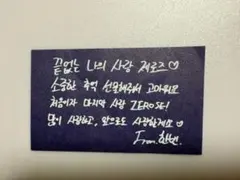 끝없는 나의 사랑 제로즈♡
소중한 추억 선물해줘서 고마워요
처음이자 마지막 사랑 ZEROSE!
많이 사랑하고, 앞으로도 사랑할게요♡
From. 한빈